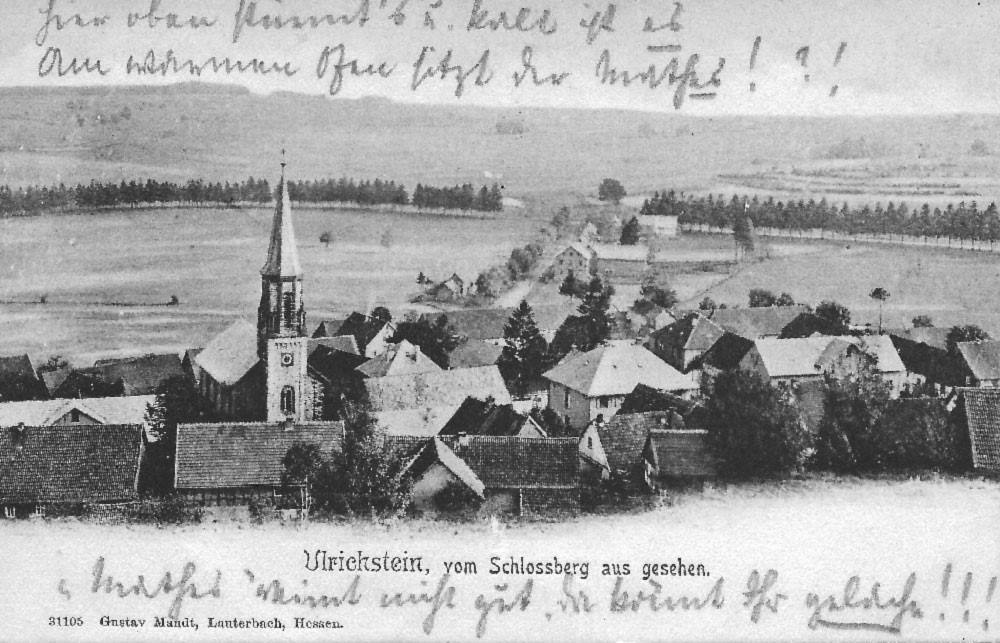 hier oben stürmt's u. kalt ist es
Am warmen Ofen sitzt der Mathes! ?!
Ulrichstein, vom Schlossberg aus gesehen.
"Mathes" nimt nicht gut, da könnt Ihr gelache!!!
31105 Gustav Mandt, Lauterbach, Hessen.